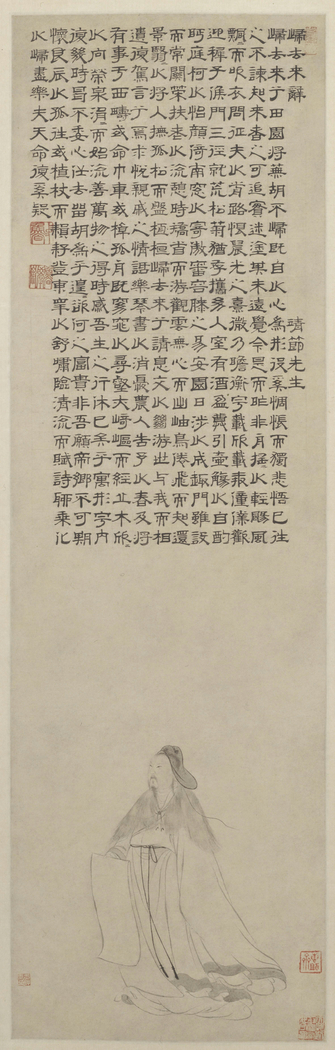 歸去來辭　靖節先生
歸去來兮田園將蕪胡不歸既自以心為形役奚惆悵而獨悲悟已往
之不諫知來者之可追實迷塗其未遠覺今是而昨非舟搖以輕颺風
飄而吹衣問征夫以前路恨晨光之熹微乃瞻衡宇載欣載奔僮僕歡
迎稚子候門三徑就荒松菊猶存攜幼入室有酒盈尊引壺觴以自酌
眄庭柯以怡顏倚南窗以寄傲審容膝之易安園日涉以成趣門雖設
而常關策扶老以流憩時矯首而游觀雲無心而出岫鳥倦飛而知還
景翳〻以將入撫孤松而盤桓歸去來兮請息交以絕游世與我而相
遺復駕言兮焉求悅親戚之情話樂琴書以消憂農人告予以春及將
有事于西疇或命巾車或棹孤舟既窈窕以尋壑亦崎嶇而經丘木欣〻
以向榮泉涓〻而始流善萬物之得時感吾生之行休已矣乎寓形宇內
復幾時曷不委心任去留胡為乎遑〻何之富貴非吾願帝鄉不可期
懷良辰以孤往或植杖而耘耔登東皋以舒嘯臨清流而賦詩聊乘化
以歸盡樂夫天命復奚疑